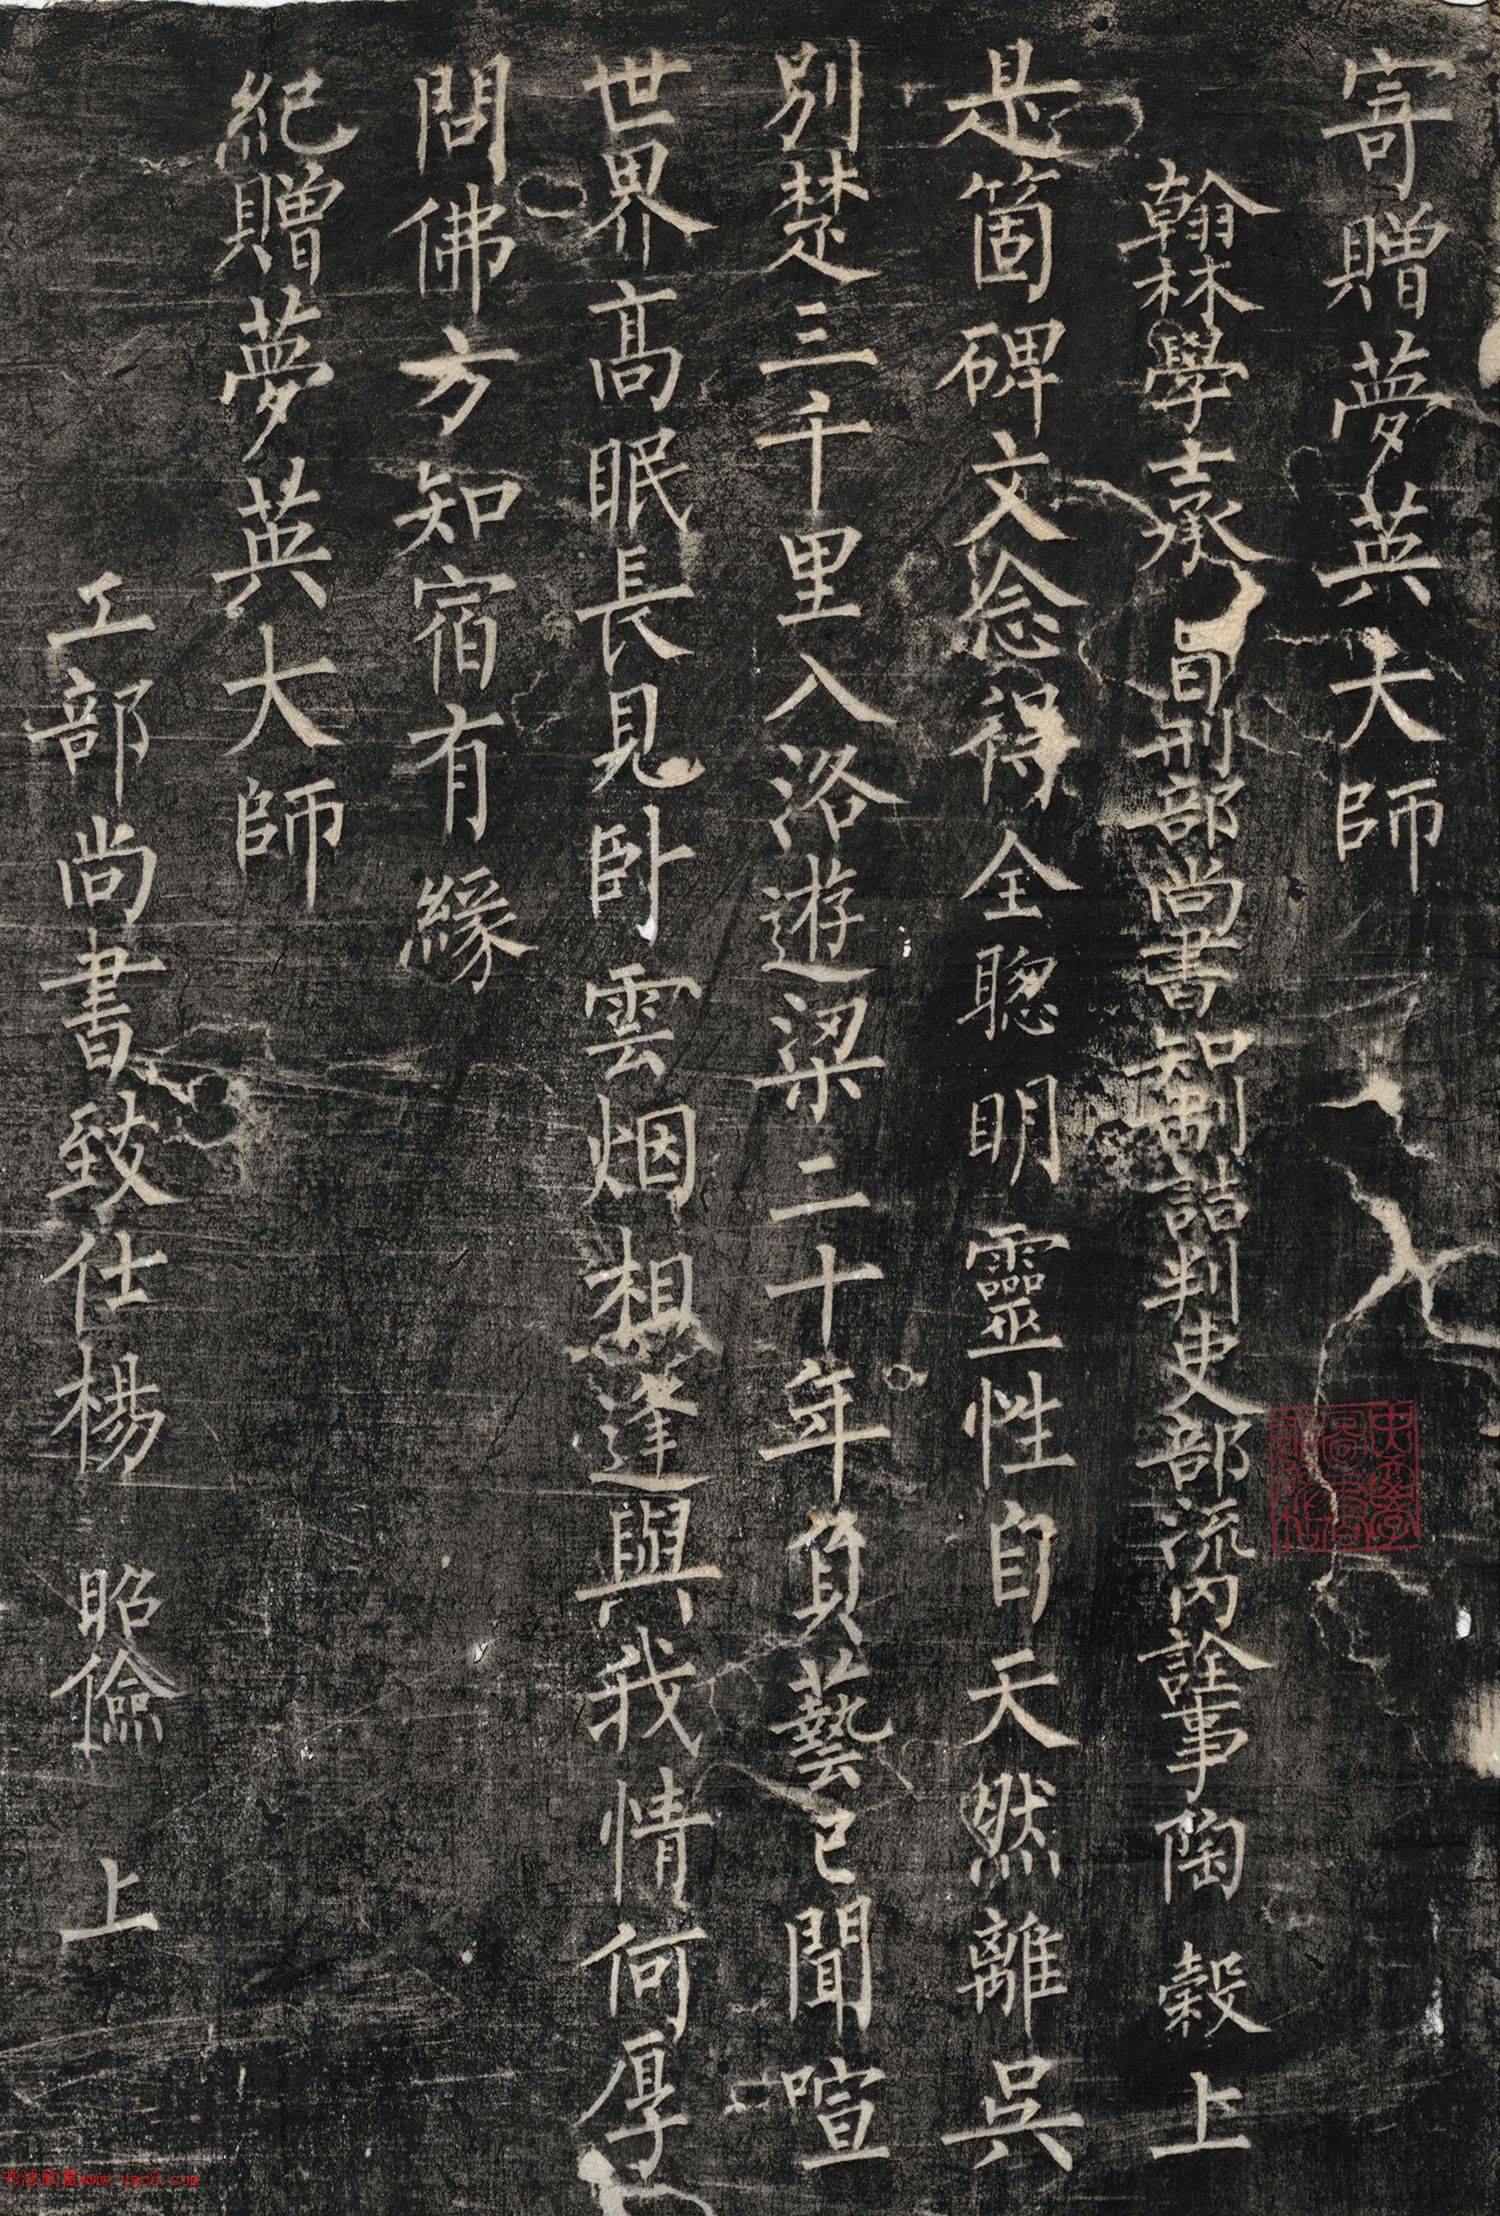 寄贈夢英大師
翰林學承旨刑部尚書知制誥判吏部流內詮事陶穀上
是箇碑文念得全聰明靈性自天然離吳
別楚三千里入洛遊梁二十年負藝已聞喧
世界高眠長見卧雲烟相逢與我情何厚
問佛方知宿有緣
紀贈夢英大師
工部尚書致仕楊昭儉上
书法欣赏www.yac8.com